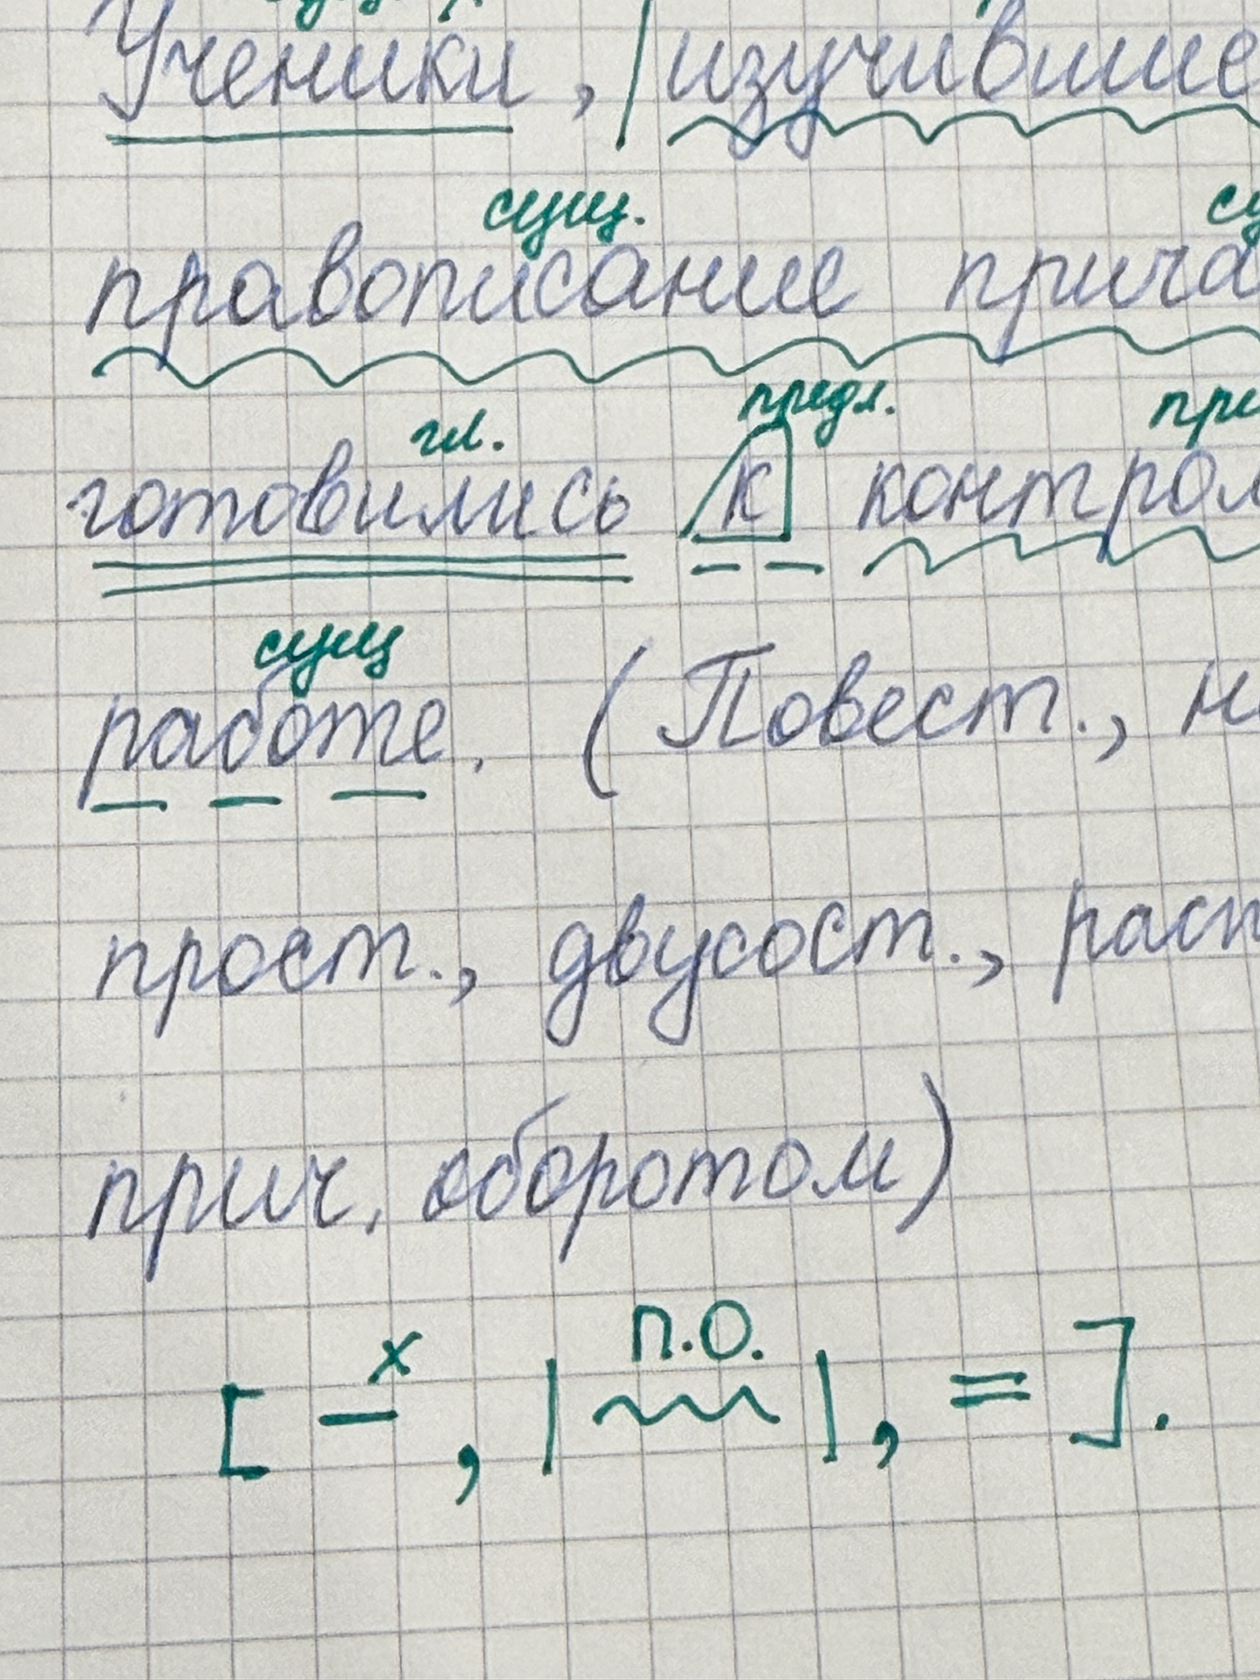 Ученики, | изучившие
сущ. су
правописание прича
гл. предл. при
готовились к контрол
сущ
работе. (Повест., н
прост., двусост., расп
прич. оборотом)
х п.о.
[ — , | ~~~ | , = ].